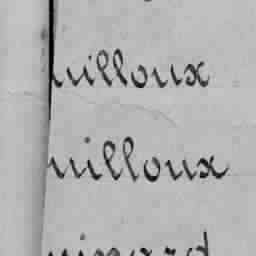 uilloux
uilloux